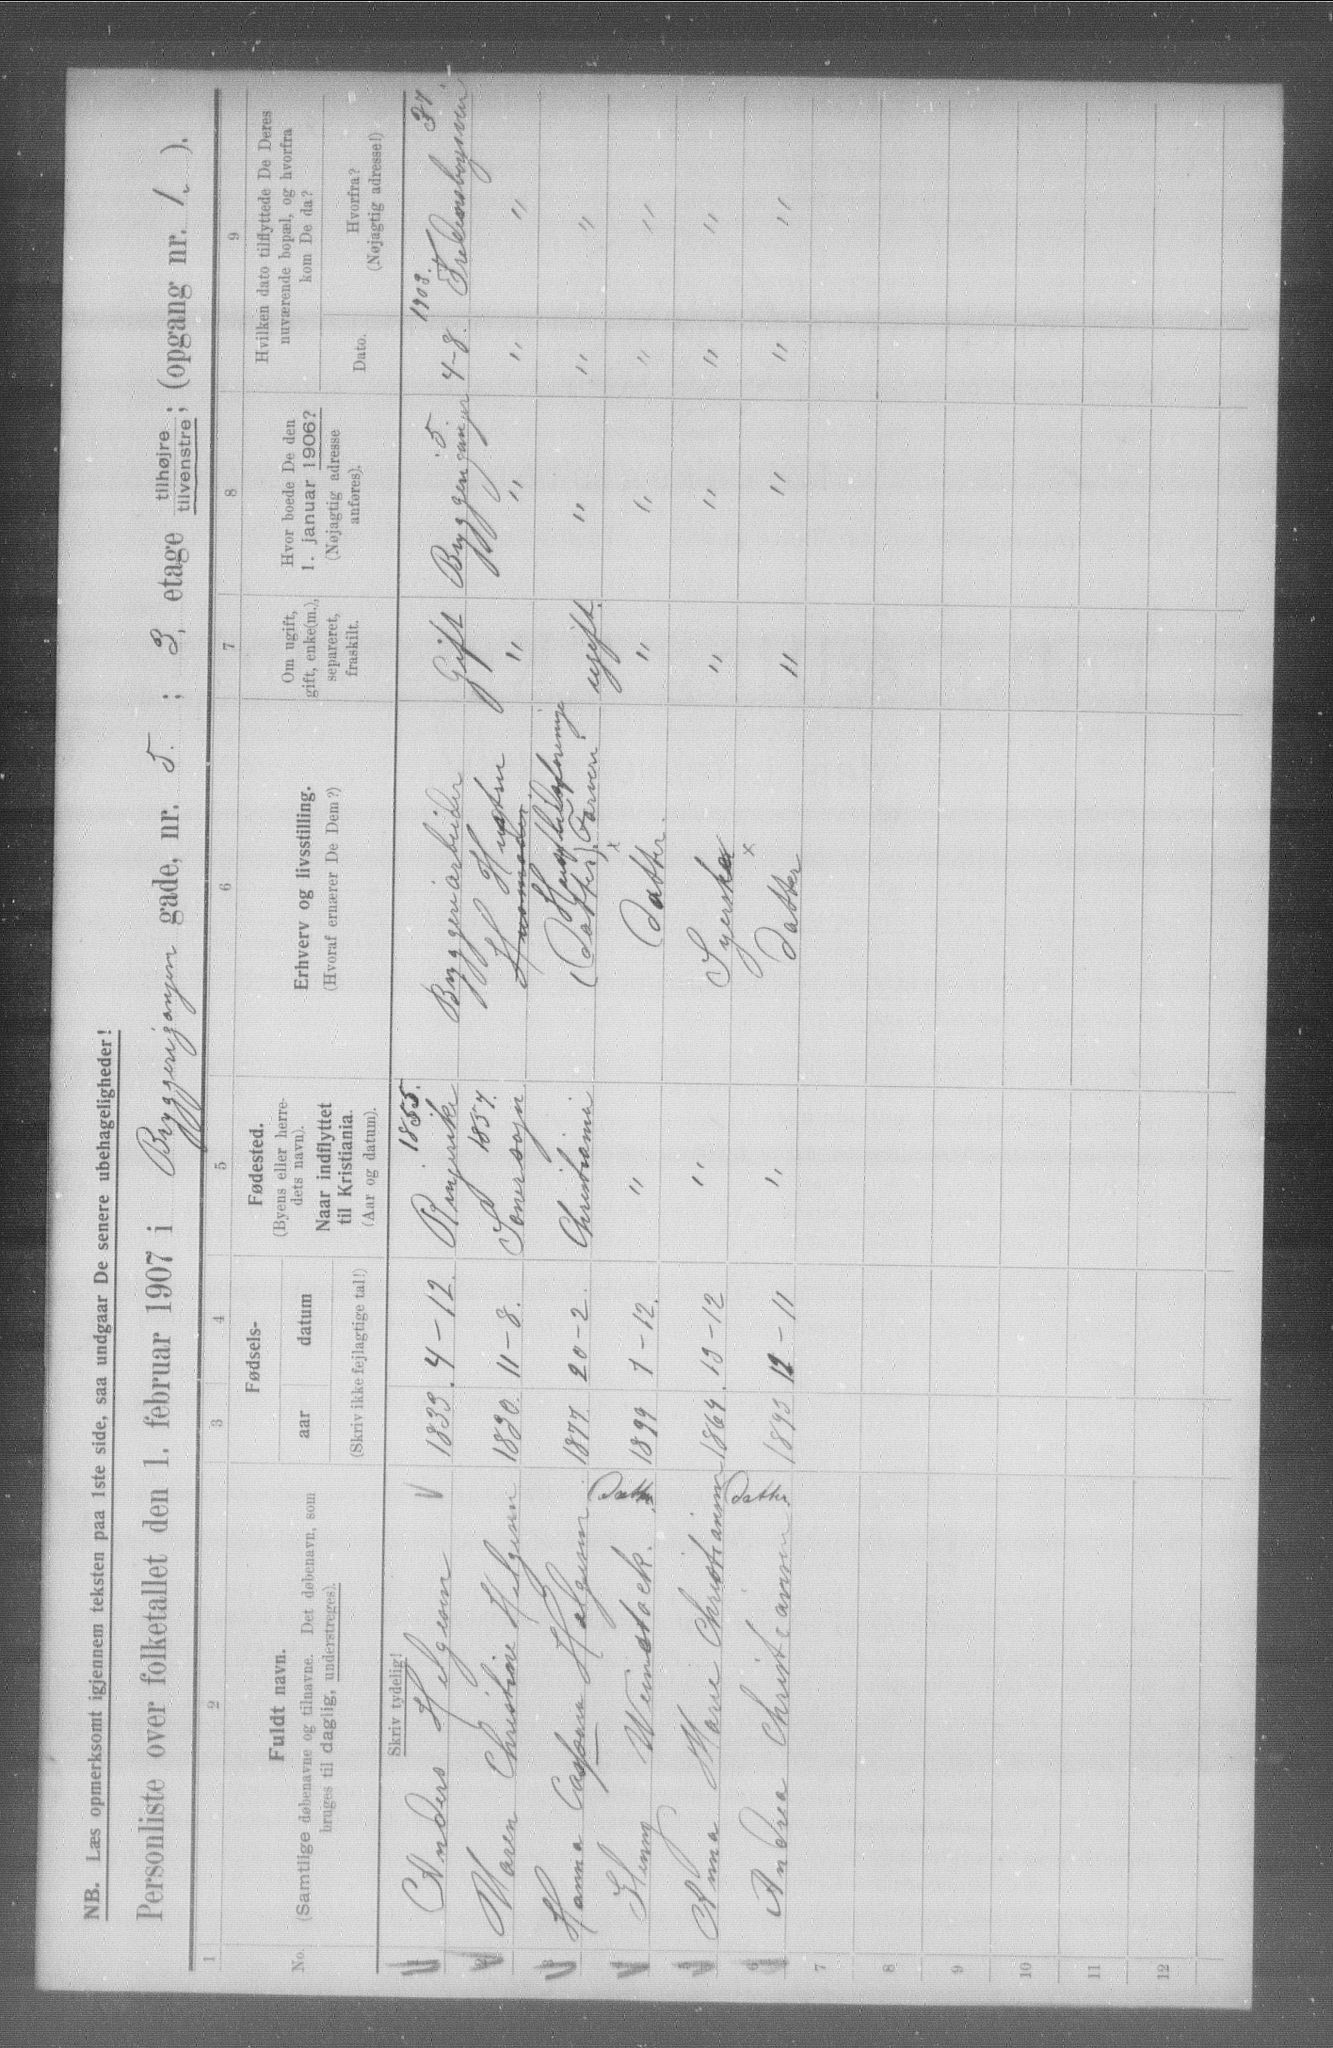 NB. Læs opmerksomt igjennem teksten paa 1ste side, saa undgaar De senere ubehageligheder!
Personliste over folketallet den 1. februar 1907 i Bryggerigangen gade, nr. 5. ; 3, etage tilhøjre tilvenstre; (opgang nr. 1. ).
1 2 3 4 5 6 7 8 9
No.
Fuldt navn.
(Samtlige døbenavne og tilnavne. Det døbenavn, som
bruges til daglig, understreges).
Fødsels-
aar datum
(Skriv ikke fejlagtige tal!)
Fødested.
(Byens eller herre-
dets navn).
Naar indflyttet
til Kristiania.
(Aar og datum).
Erhverv og livsstilling.
(Hvoraf ernærer De Dem?)
Om ugift,
gift, enke(m.),
separeret,
fraskilt.
Hvor boede De den
1. januar 1906?
(Nøjagtig adresse
anføres).
Hvilken dato tilflyttede De Deres
nuværende bopæl, og hvorfra
kom De da?
Dato.
Hvorfra?
(Nøjagtig adresse!)
Skriv tydelig!
1855. 5. 1903. 37.
Anders Helgesen 1833. 4-12. Ringerike Bryggeriarbeider Gift Bryggerigangen 4-8.
1857.
Maren Christine Helgesen 1830. 11-8. Hustru " " " "
Hanna Helgesen 1877. 20-2. Christiania (Datter) Farveri ugift. " " "
Datter
Henny 1899 7-12. " Datter. " " " "
Anna Marie Christiansen 1864. 13-12 " Syerske " " " "
Datter.
Andrea Christiansen 1893 12-11 " Datter " " " "
7
8
9
10
11
12